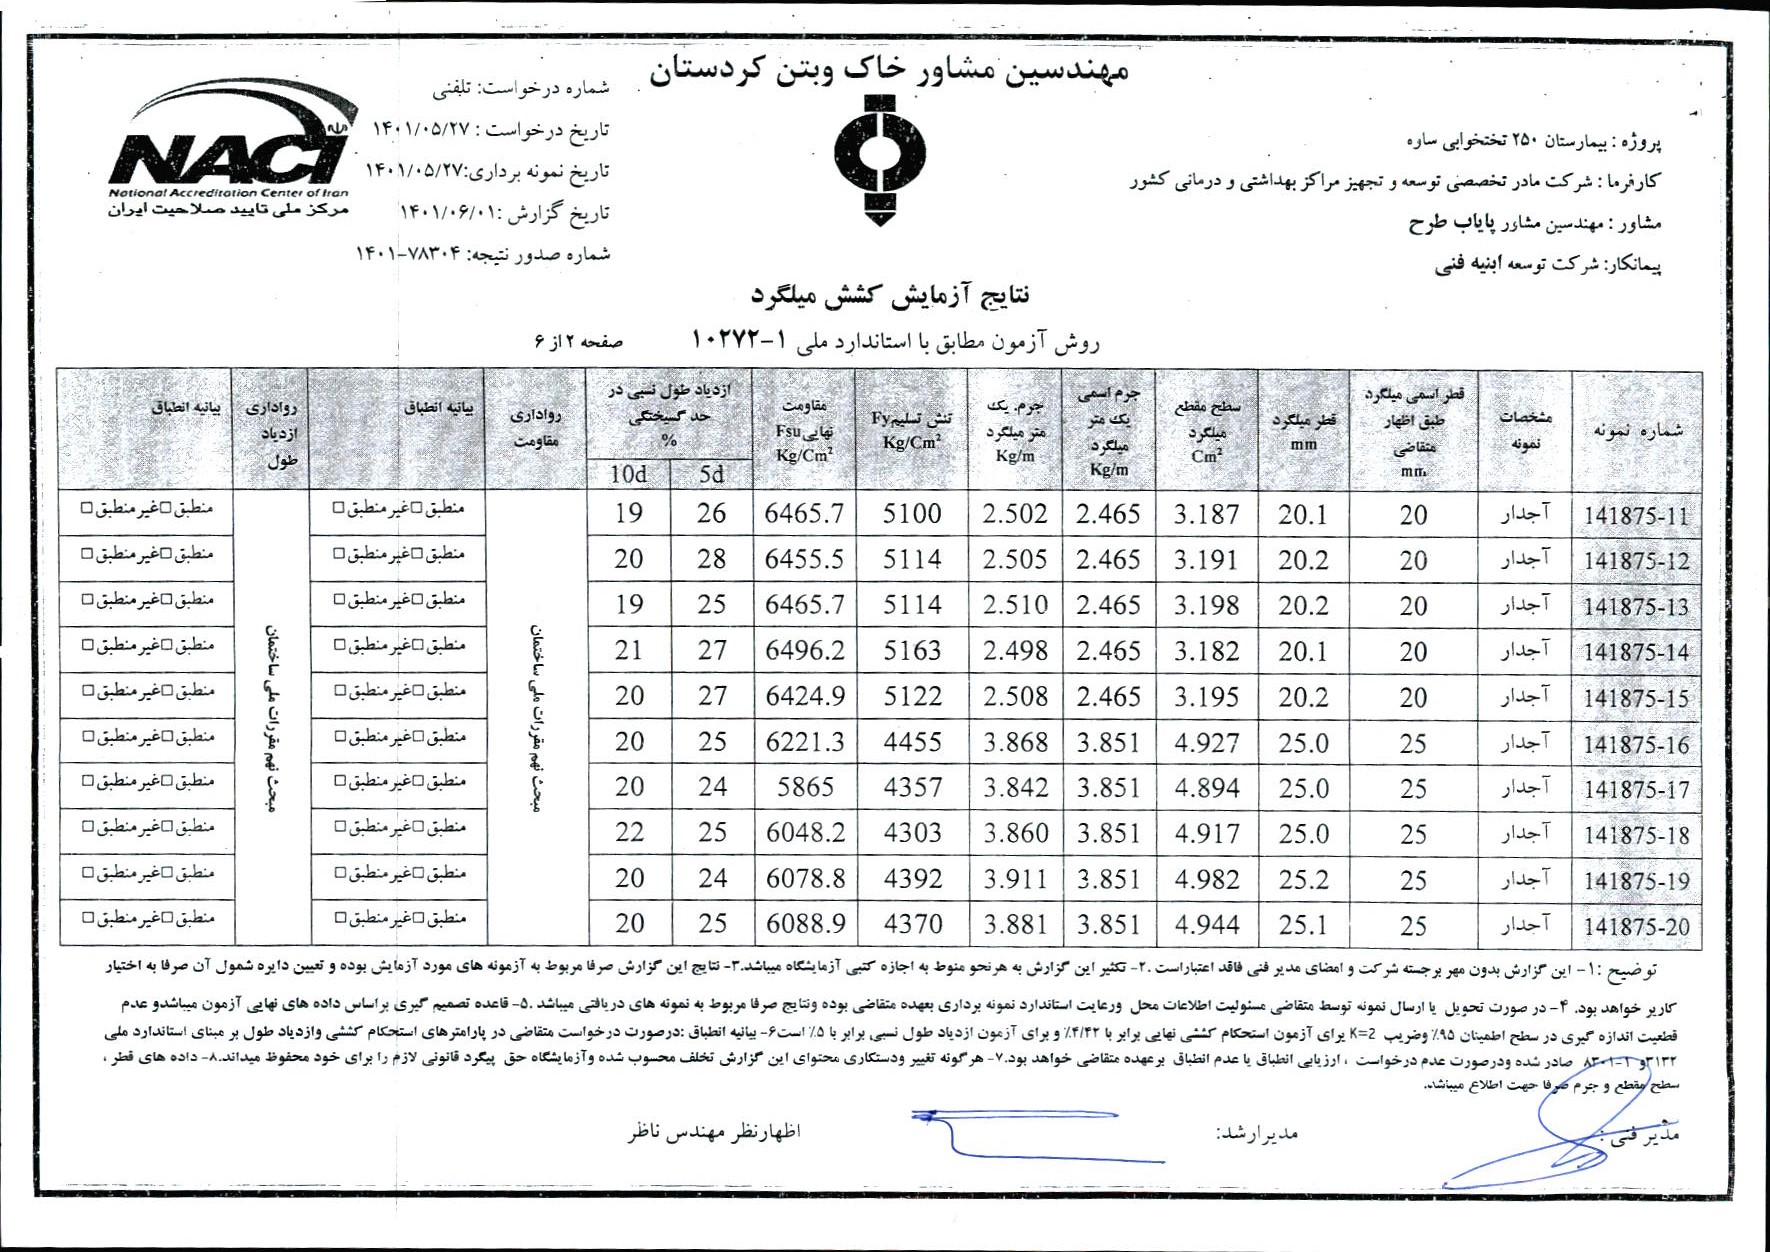 مهندسین مشاور خاک وبتن کردستان
پروژه : بیمارستان ۲۵۰ تختخوابی ساوه
کارفرما : شرکت مادر تخصصی توسعه و تجهیز مراکز بهداشتی و درمانی کشور
مشاور : مهندسین مشاور پایاب طرح
پیمانکار: شرکت توسعه ابنیه فنی
شماره درخواست: تلفنی
تاریخ درخواست : ۱۴۰۱/۰۵/۲۷
تاریخ نمونه برداری:۱۴۰۱/۰۵/۲۷
تاریخ گزارش :۱۴۰۱/۰۶/۰۱
شماره صدور نتیجه: ۷۸۳۰۴-۱۴۰۱
NACI
National Accreditation Center of Iran
مرکز ملی تایید صلاحیت ایران
نتایج آزمایش کشش میلگرد
روش آزمون مطابق با استاندارد ملی ۱-۱۰۲۷۲ صفحه ۲ از ۶
شماره نمونه | مشخصات نمونه | قطر اسمی میلگرد طبق اظهار متقاضی mm | قطر میلگرد mm | سطح مقطع میلگرد Cm² | جرم اسمی یک متر میلگرد Kg/m | جرم یک متر میلگرد Kg/m | تنش تسلیم Fy Kg/Cm² | مقاومت نهایی Fsu Kg/Cm² | ازدیاد طول نسبی در حد گسیختگی % 5d | 10d | رواداری مقاومت | بیانیه انطباق | رواداری ازدیاد طول | بیانیه انطباق
141875-11 آجدار 20 20.1 3.187 2.465 2.502 5100 6465.7 26 19 منطبق□غیر منطبق□ منطبق□غیر منطبق□
141875-12 آجدار 20 20.2 3.191 2.465 2.505 5114 6455.5 28 20 منطبق□غیر منطبق□ منطبق□غیر منطبق□
141875-13 آجدار 20 20.2 3.198 2.465 2.510 5114 6465.7 25 19 منطبق□غیر منطبق□ منطبق□غیر منطبق□
141875-14 آجدار 20 20.1 3.182 2.465 2.498 5163 6496.2 27 21 منطبق□غیر منطبق□ منطبق□غیر منطبق□
141875-15 آجدار 20 20.2 3.195 2.465 2.508 5122 6424.9 27 20 منطبق□غیر منطبق□ منطبق□غیر منطبق□
141875-16 آجدار 25 25.0 4.927 3.851 3.868 4455 6221.3 25 20 منطبق□غیر منطبق□ منطبق□غیر منطبق□
141875-17 آجدار 25 25.0 4.894 3.851 3.842 4357 5865 24 20 منطبق□غیر منطبق□ منطبق□غیر منطبق□
141875-18 آجدار 25 25.0 4.917 3.851 3.860 4303 6048.2 25 22 منطبق□غیر منطبق□ منطبق□غیر منطبق□
141875-19 آجدار 25 25.2 4.982 3.851 3.911 4392 6078.8 24 20 منطبق□غیر منطبق□ منطبق□غیر منطبق□
141875-20 آجدار 25 25.1 4.944 3.851 3.881 4370 6088.9 25 20 منطبق□غیر منطبق□ منطبق□غیر منطبق□
مبحث نهم مقررات ملی ساختمان
مبحث نهم مقررات ملی ساختمان
توضیح :۱- این گزارش بدون مهر برجسته شرکت و امضای مدیر فنی فاقد اعتباراست .۲- تکثیر این گزارش به هرنحو منوط به اجازه کتبی آزمایشگاه میباشد.۳- نتایج این گزارش صرفا مربوط به آزمونه های مورد آزمایش بوده و تعیین دایره شمول آن صرفا به اختیار
کاربر خواهد بود. ۴- در صورت تحویل یا ارسال نمونه توسط متقاضی مسئولیت اطلاعات محل ورعایت استاندارد نمونه برداری بعهده متقاضی بوده ونتایج صرفا مربوط به نمونه های دریافتی میباشد .۵- قاعده تصمیم گیری براساس داده های نهایی آزمون میباشدو عدم
قطعیت اندازه گیری در سطح اطمینان ۹۵٪ وضریب K=2 برای آزمون استحکام کششی نهایی برابر با ۴/۴۲٪ و برای آزمون ازدیاد طول نسبی برابر با ۵٪ است۶- بیانیه انطباق :درصورت درخواست متقاضی در پارامترهای استحکام کششی وازدیاد طول بر مبنای استاندارد ملی
۳۱۳۲و ۱-۸۳۰۱ صادر شده ودرصورت عدم درخواست ، ارزیابی انطباق یا عدم انطباق برعهده متقاضی خواهد بود.۷- هرگونه تغییر ودستکاری محتوای این گزارش تخلف محسوب شده وآزمایشگاه حق پیگرد قانونی لازم را برای خود محفوظ میداند.۸- داده های قطر ،
سطح مقطع و جرم صرفا جهت اطلاع میباشد.
مدیر فنی : مدیرارشد: اظهارنظر مهندس ناظر